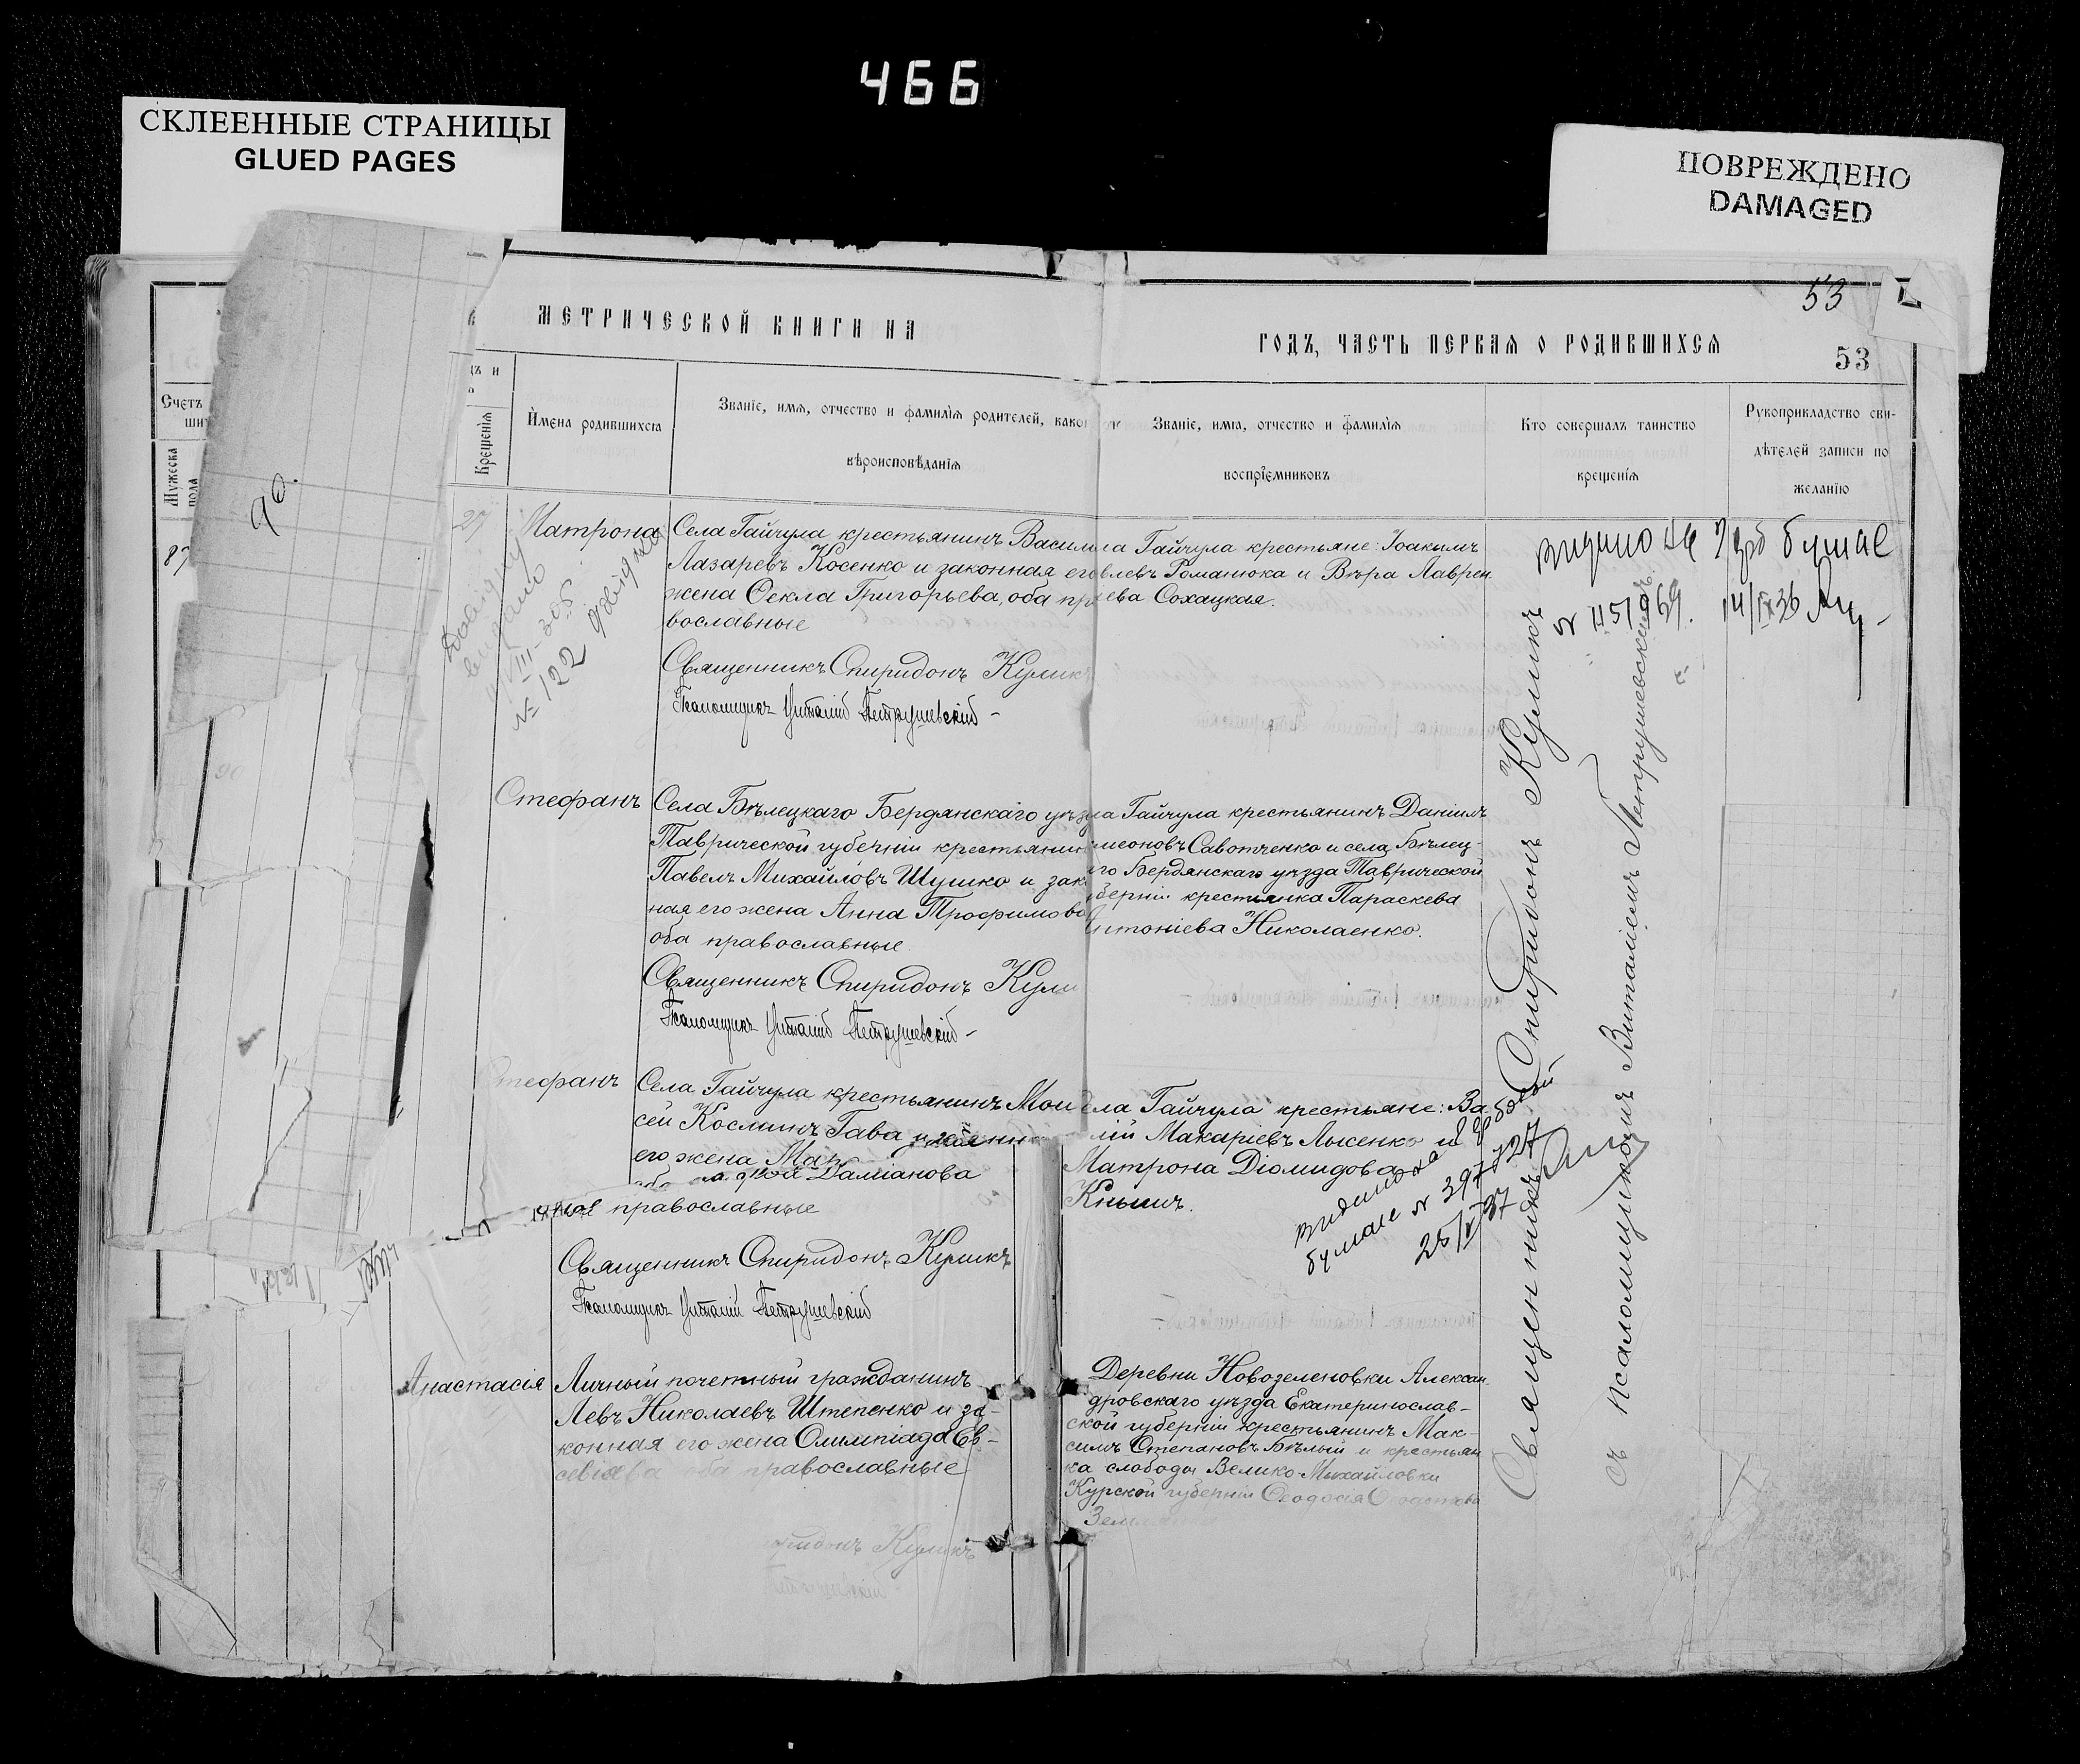 466
СКЛЕЕННЫЕ СТРАНИЦЫ
GLUED PAGES
ПОВРЕЖДЕНО
DAMAGED
53
МЕТРИЧЕСКОЙ КНИГИ НА
ГОДЪ, ЧАСТЬ ПЕРВАЯ О РОДИВШИХСЯ
53
Счетъ
Мужеска
пола
Крещенія
Имена родившихся
Званіе, имя, отчество и фамилія родителей, како
вѣроисповѣданія
Званіе, имя, отчество и фамилія
воспріемниковъ
Кто совершалъ таинство
крещенія
Рукоприкладство сви-
дѣтелей записи по
желанію
90.
87
27
Матрона
Села Гайчула крестьянинъ Васил
Лазаревъ Косенко и законная его
жена Ѳекла Григорьева, оба пра
вославные
Священникъ Спиридонъ Кулик
Псаломщикъ Виталій Петрушевскій
ла Гайчула крестьяне: Іоакимъ
влевъ Романюка и Вѣра Лаврен
ева Сохацкая.
№ 122
Стефанъ
Села Бѣлецкаго Бердянскаго уѣзд
Таврической губерніи крестьянин
Павелъ Михайловъ Шушко и зак
ная его жена Анна Трофимова
оба православные
Священникъ Спиридонъ Кули
Псаломщикъ Виталій Петрушевскій
ла Гайчула крестьянинъ Даніилъ
меоновъ Савотченко и села Бѣлец-
го Бердянскаго уѣзда Таврической
берніи крестьянка Параскева
Антоніева Николаенко.
тефанъ
Села Гайчула крестьянинъ Мои
сей Косминъ Гава
его жена
Даміанова
православные
Священникъ Спиридонъ Куликъ
Псаломщикъ Виталій Петрушевскій
ла Гайчула крестьяне: Ва
лій Макаріевъ Лысенко и
Матрона Діомидова
Кнышъ.
Анастасія
Личный почетный гражданинъ
Левъ Николаевъ Штепенко и за-
конная его жена Олимпіада Ев-
севіева оба православные
ридонъ Куликъ
Деревни Новозеленовки Алексан
дровскаго уѣзда Екатеринослав-
ской губерніи крестьянинъ Мак-
симъ Степановъ Бѣлый и крестьян
ка слободы Велико-Михайловки
Курской губерніи Ѳеодосія
Зем
Священникъ Спиридонъ Куликъ
съ псаломщикомъ Виталіемъ Петрушевскимъ.